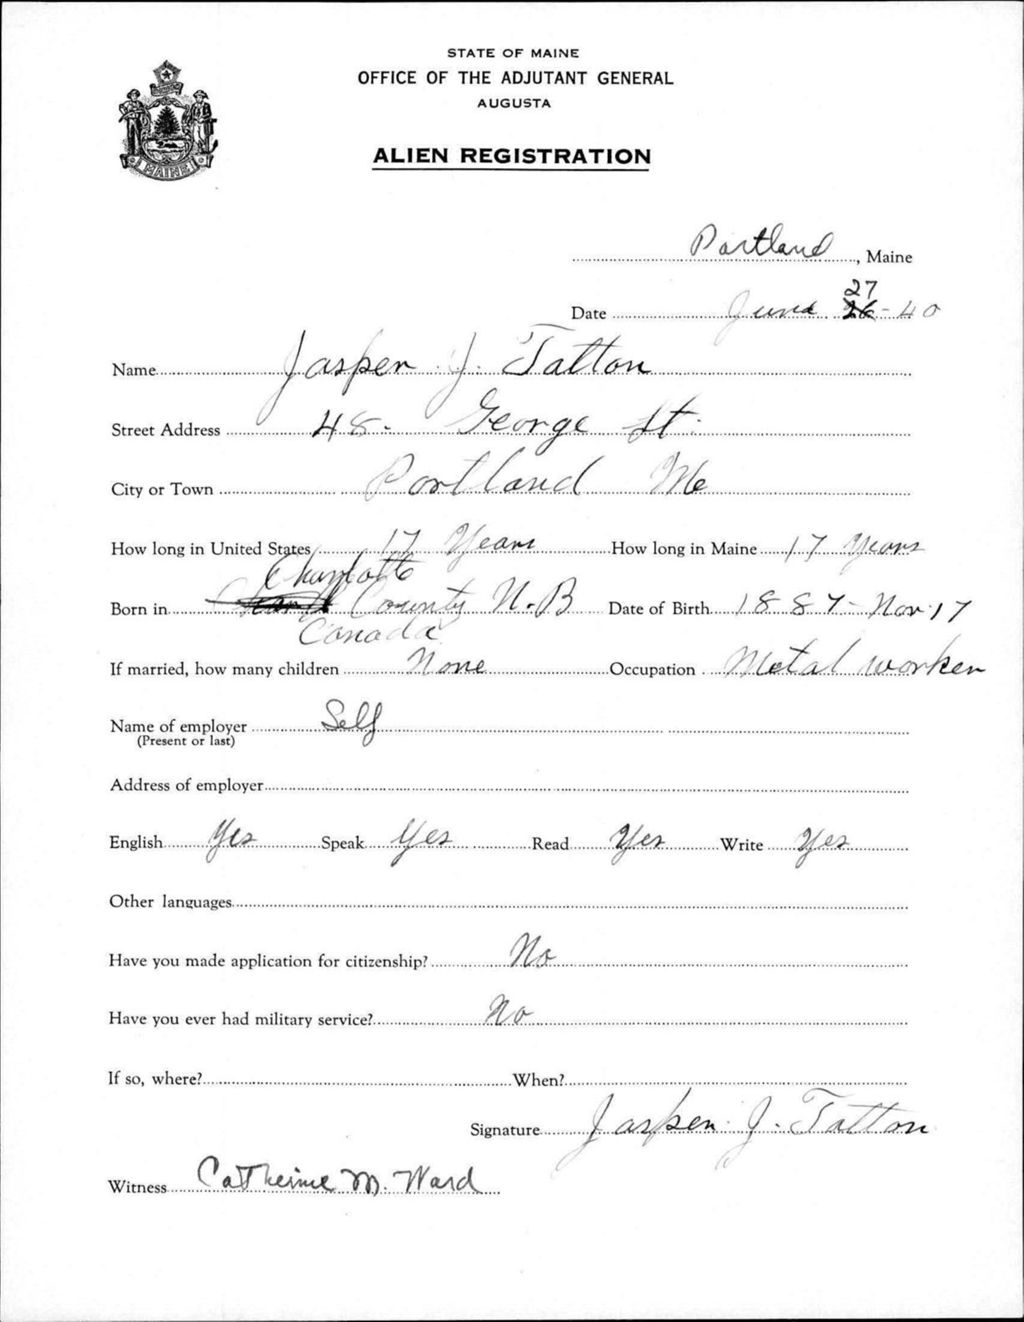 STATE OF MAINE
OFFICE OF THE ADJUTANT GENERAL
AUGUSTA
ALIEN REGISTRATION
MAINE
Portland, Maine
27
Date June 26-40
Name Jasper J. Tatton
Street Address 48- George St.
City or Town Portland Me
How long in United States 17 Years How long in Maine 17 Years
Charlotte
Born in County N.B Date of Birth 1887-Nov 17
Canada
If married, how many children None Occupation Metal worker
Name of employer Self
(Present or last)
Address of employer
English Yes Speak Yes Read Yes Write Yes
Other languages
Have you made application for citizenship? No
Have you ever had military service? No
If so, where? When?
Signature Jasper J. Tatton
Witness Catherine M. Ward